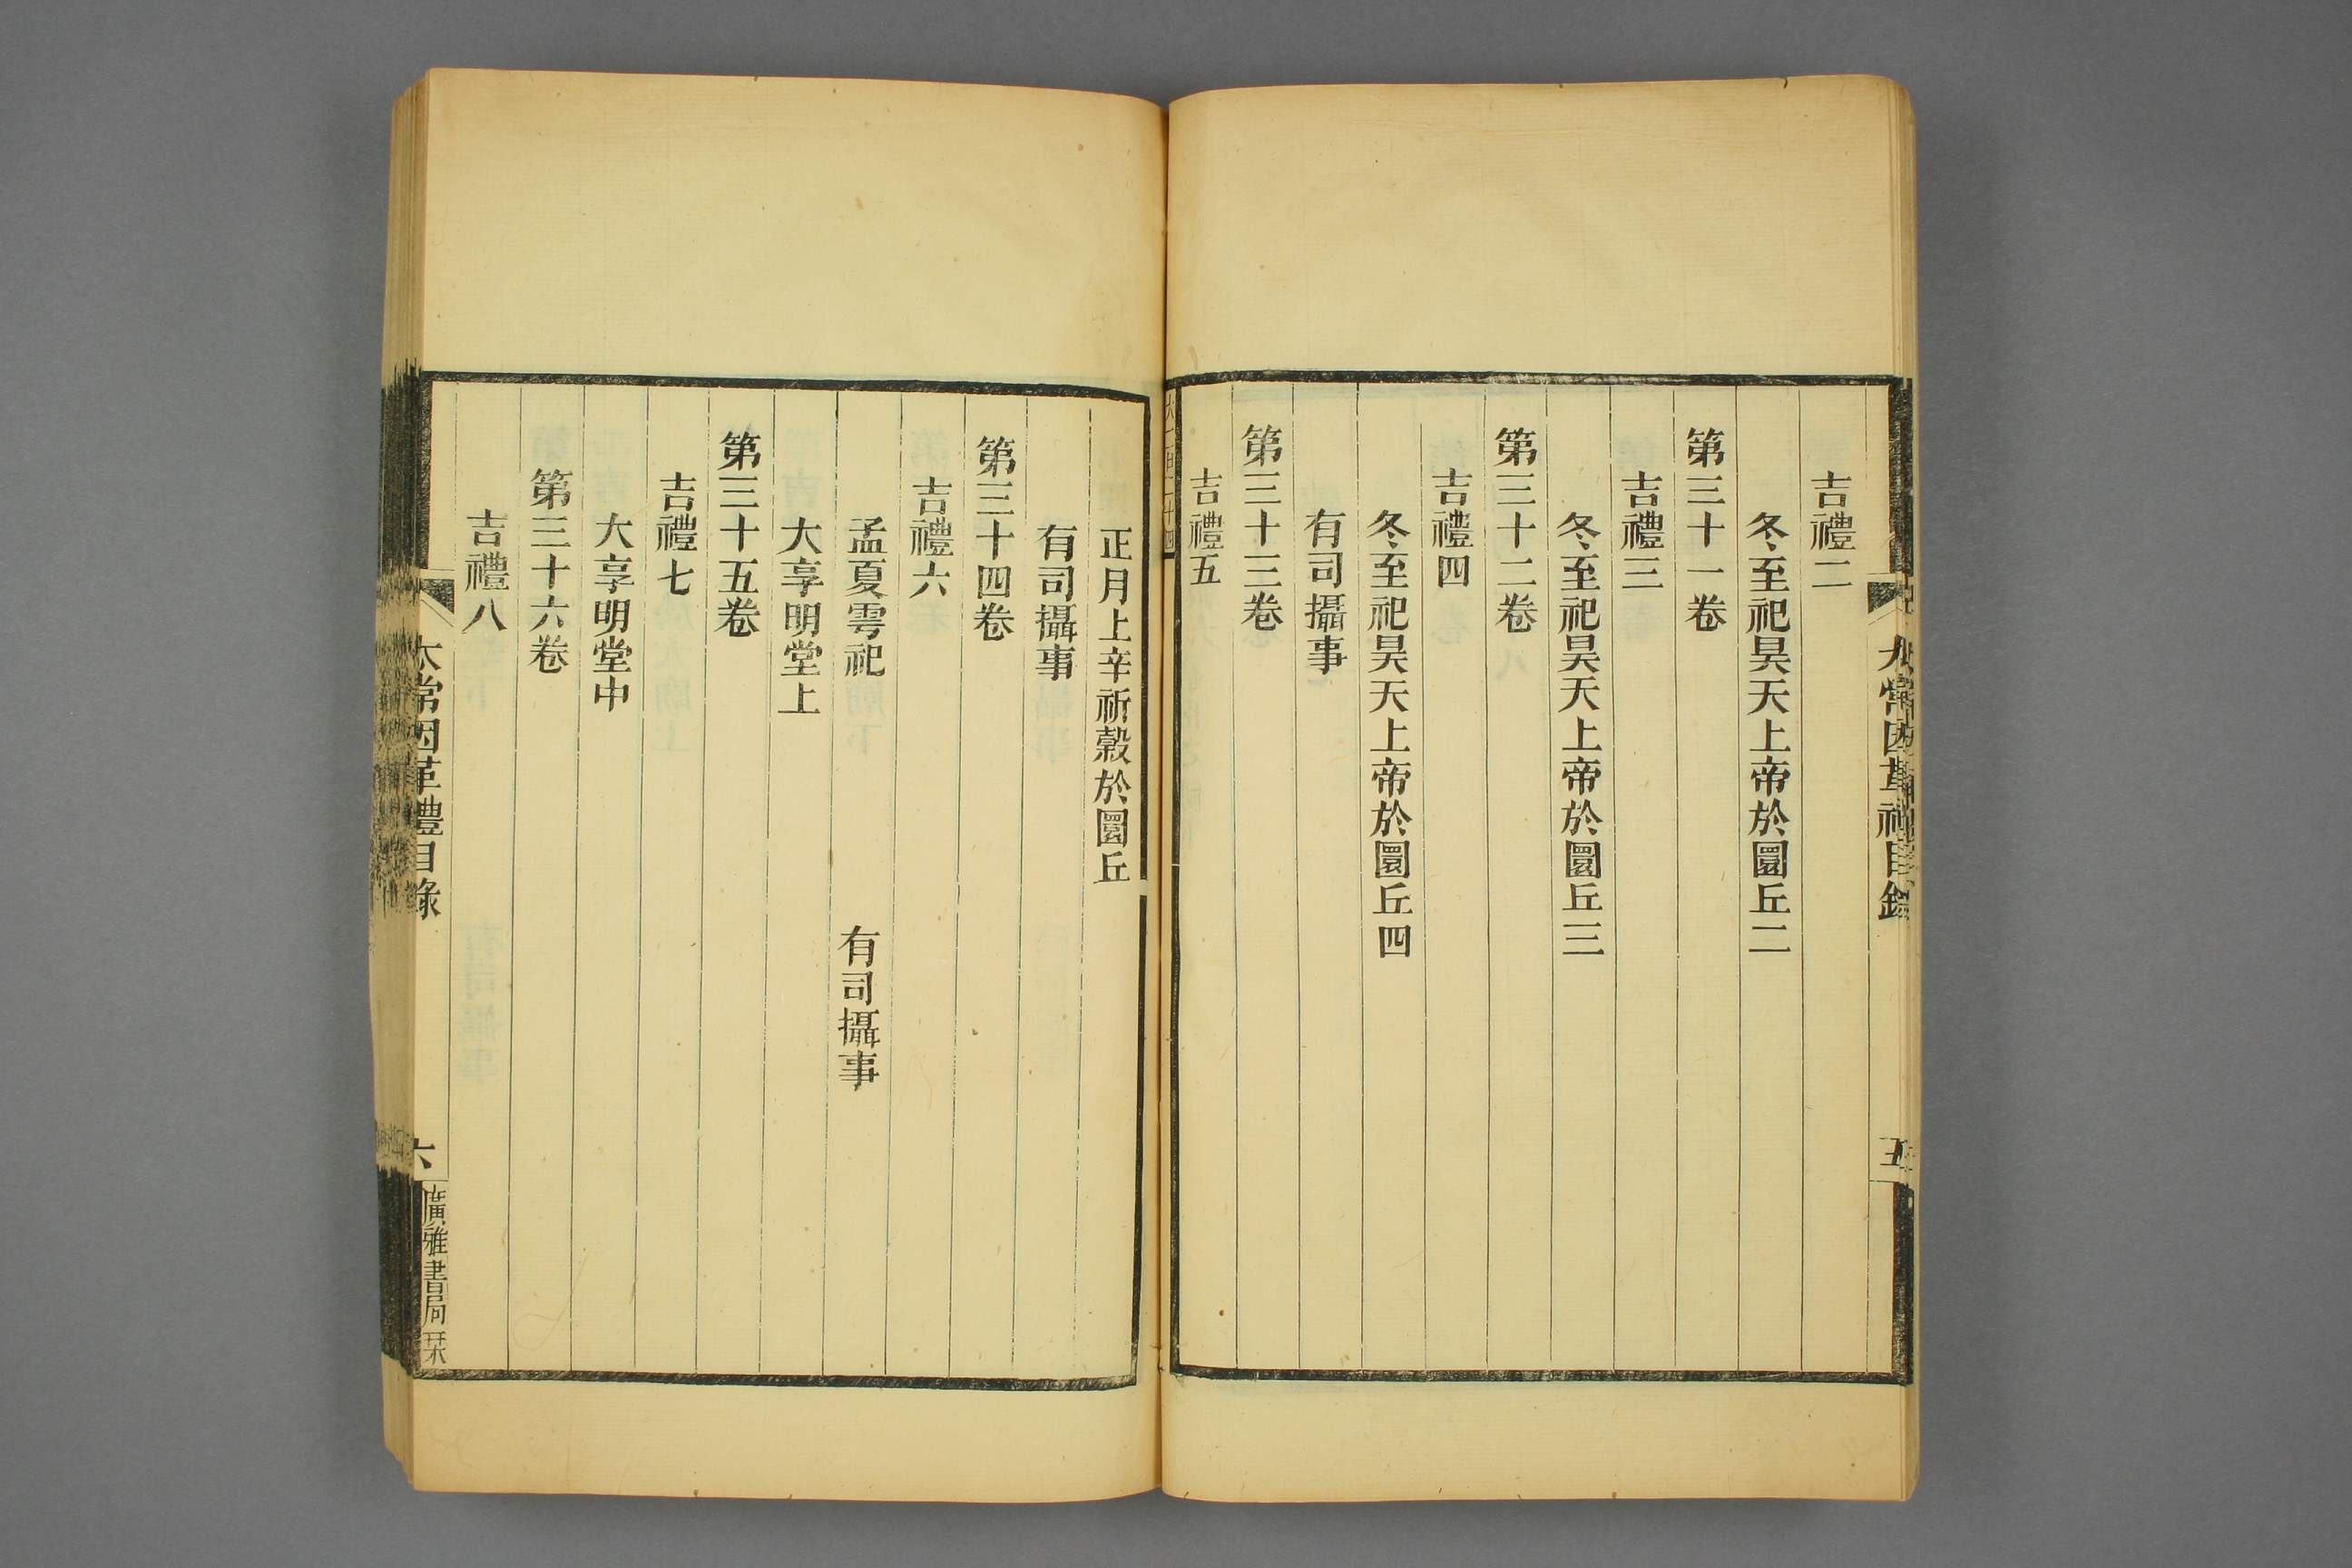 吉禮二
冬至祀昊天上帝於圜丘二
第三十一卷
吉禮三
冬至祀昊天上帝於圜丘三
第三十二卷
吉禮四
冬至祀昊天上帝於圜丘四
有司攝事
第三十三卷
吉禮五
正月上辛祈穀於圜丘
有司攝事
第三十四卷
吉禮六
孟夏雩祀 有司攝事
大享明堂上
第三十五卷
吉禮七
大享明堂中
第三十六卷
吉禮八
太常因革禮目錄 六 廣雅書局栞